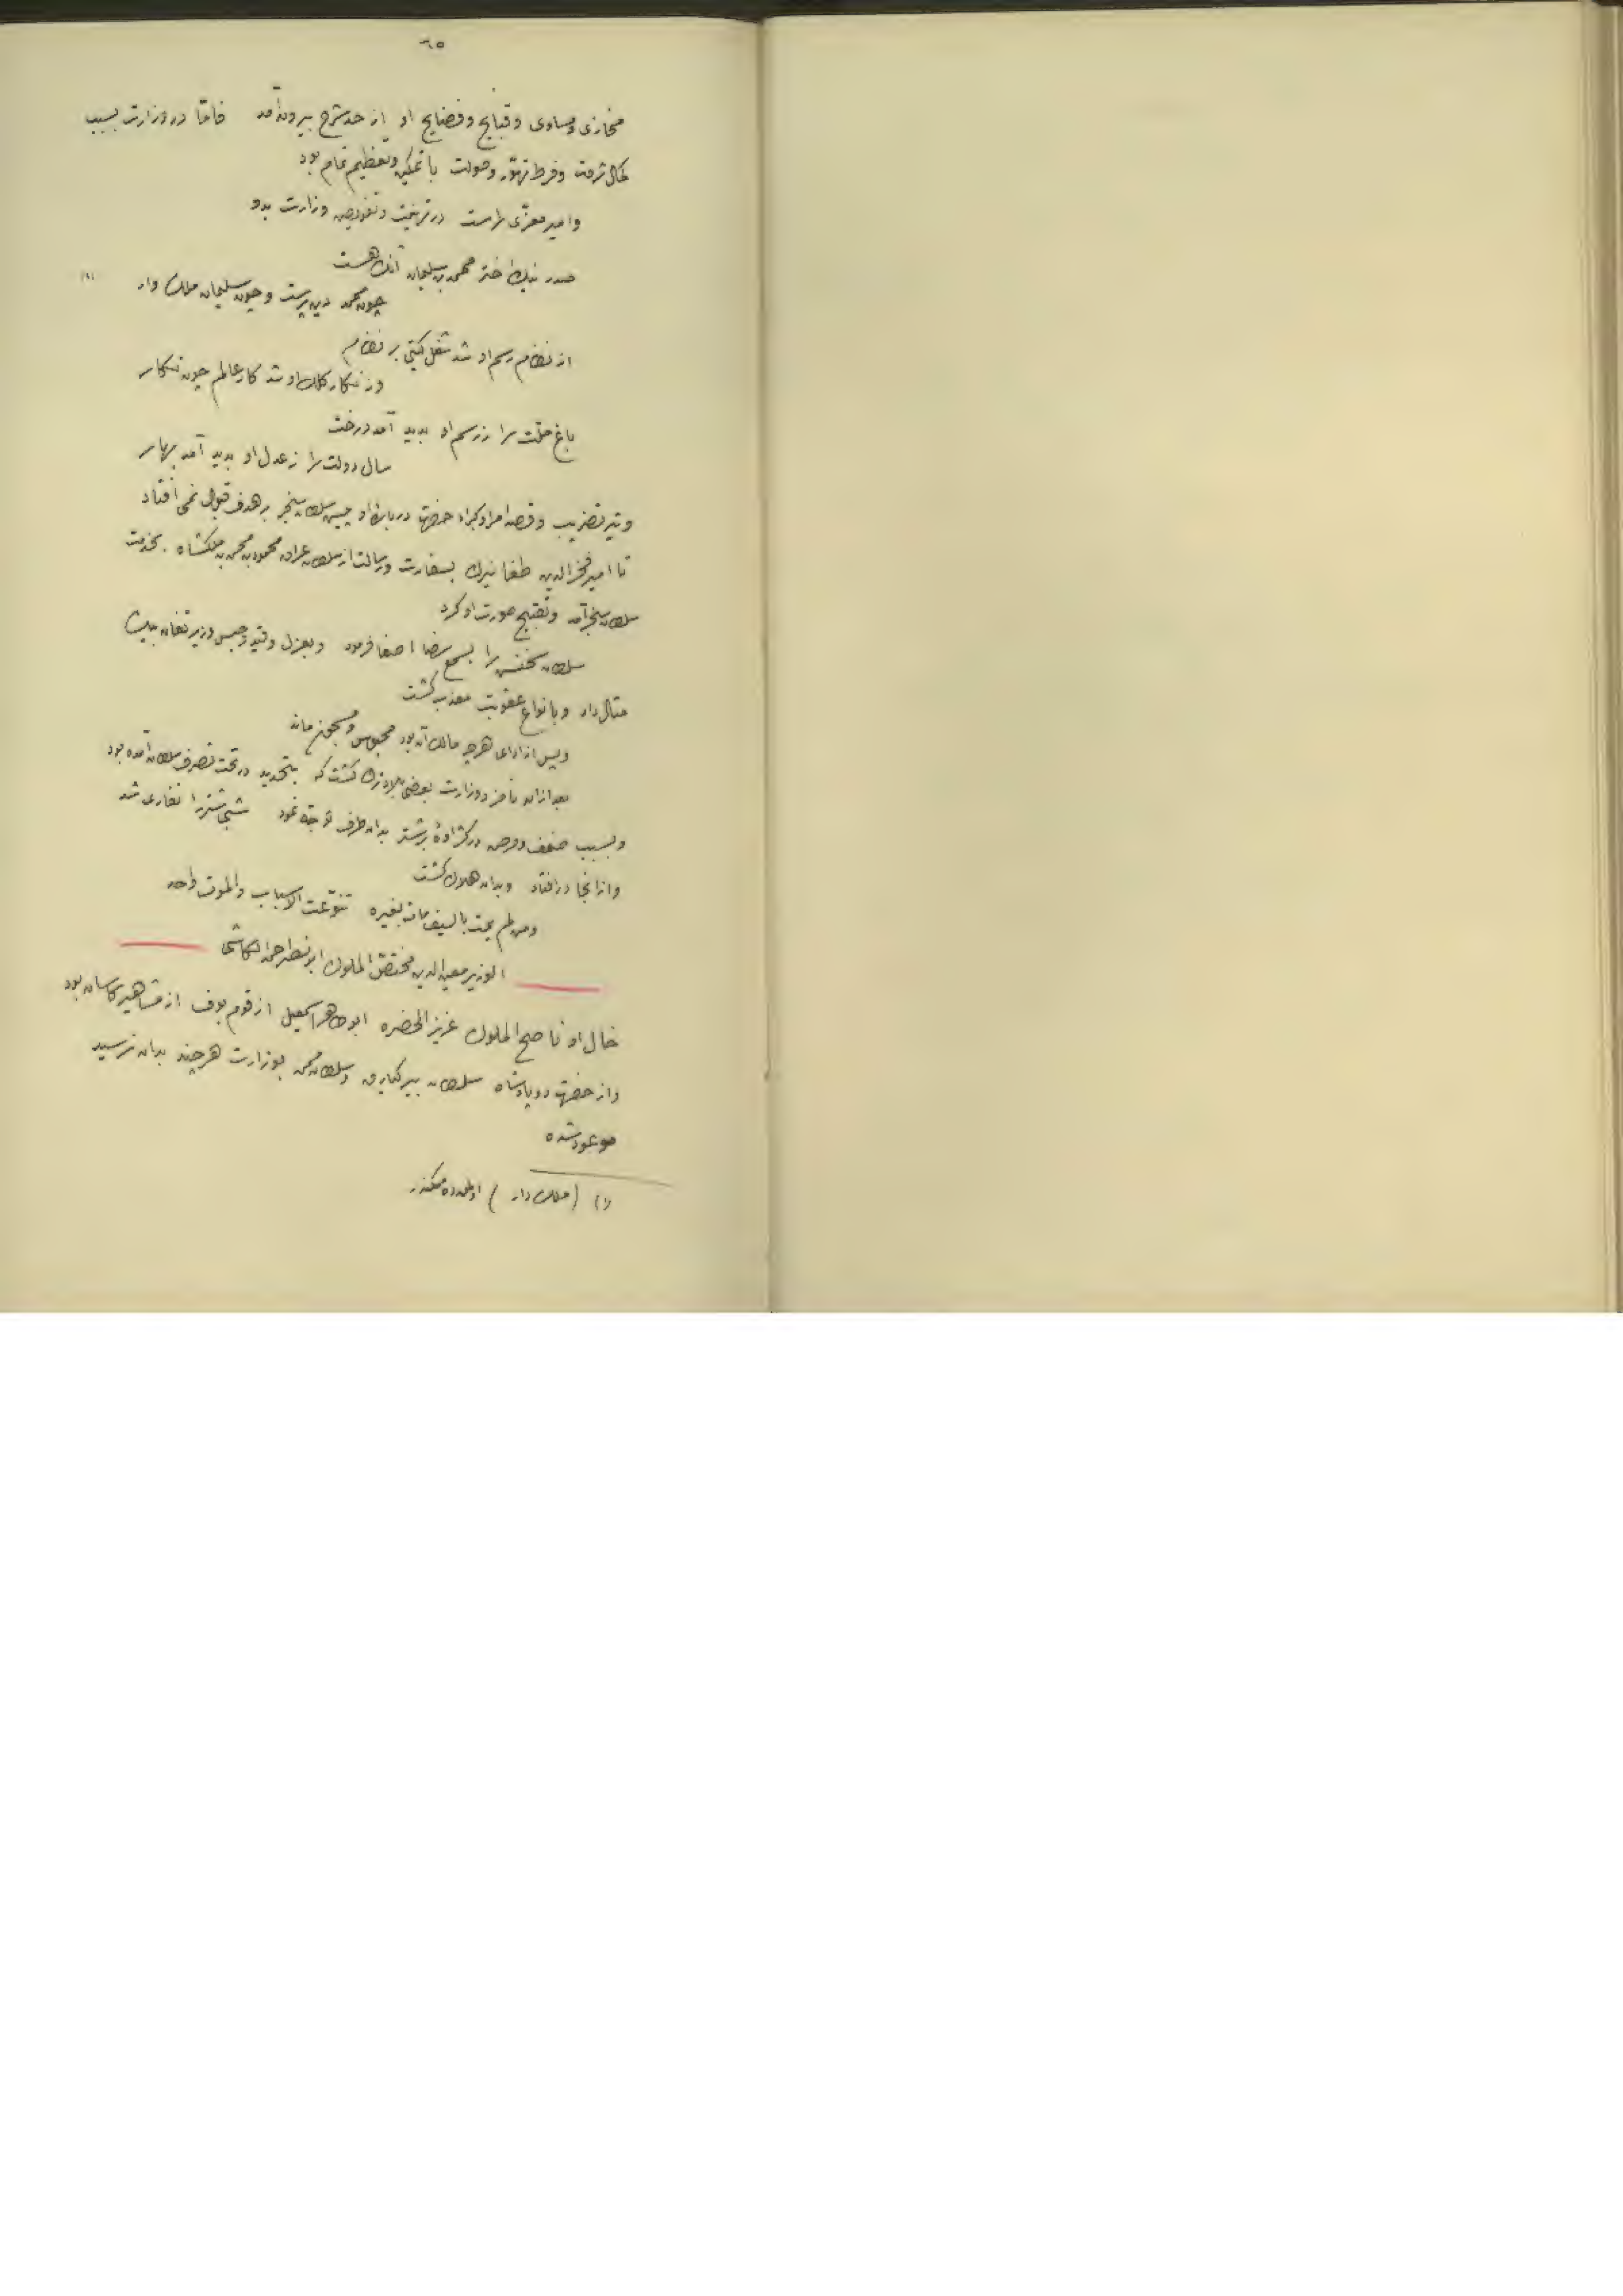 ٦٥
مخازی و مساوی و قبایح و فضایح او از حد شرح بیرون آمد فامّا در وزارت بسبب
کمال ثروت و فرط تهوّر و صولت با تمکین و تعظیم تمام بود
و امیر معزّی راست در تهنیت و تفویض وزارت بدو
صدر نیک اختر محمد بن سلیمان آنک هست
چون محمد دین پرست و چون سلیمان ملک وار (١)
از نظام رسم او شد شغل گیتی بر نظام
وز نگار کلک او شد کار عالم چون نگار
باغ ملّت را ز رسم او بدید آمد درخت
سال دولت را ز عدل او بدید آمد بهار
و تیر تضریب و قصد امرا و کبراء حضرت در باره او پیش سلطان سنجر بر هدف قبول نمی افتاد
تا امیر فخر الدین طغایرک بسفارت و رسالت از سلطان عراق محمود بن محمد بن ملکشاه بخدمت
سلطان سنجر آمد و تقبیح صورت او کرد
سلطان سخنش را بسمع رضا اصغا فرمود و بعزل و قید و حبس وزیر تغان بیک
مثال داد و بانواع عقوبت معذب گشت
و پس از ادای هرچه مالک آن بود محبوس و مسجون ماند
بعد از آن نامزد وزارت بعضی بلاد ترک گشت که بتجدید در تحت تصرف سلطان آمده بود
و بسبب ضعف و مرض در کژاوهٔ بر شتر بدان طرف توجّه نمود شبی شتر را نفاری شد
و از آنجا در افتاد و بدان هلاک گشت
و من لم یمت بالسیف مات بغیره تنوّعت الاسباب و الموت واحد
الوزیر معین الدین مختصّ الملوک ابو نصر احمد الکاشی
خال او ناصح الملوک عزیز الحضره ابو طاهر اسمعیل از قوم بوف از مشاهیر کاسان بود
و از حضرت دو پادشاه سلطان بیرکیارق و سلطان محمد بوزارت هرچند بدان نرسید
موعود شده
(١) (ملک دار)